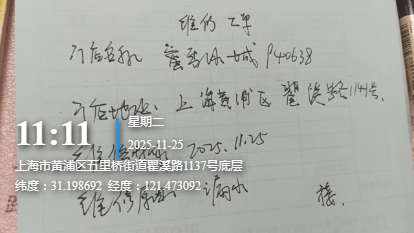 维修工单
门店名称: 蜜雪冰城P40638
门店地址: 上海黄浦区瞿溪路1141号.
11:11
星期二
2025-11-25
2025.11.25
上海市黄浦区五里桥街道瞿溪路1137号底层
纬度：31.198692 经度：121.473092
维修原因: 漏水